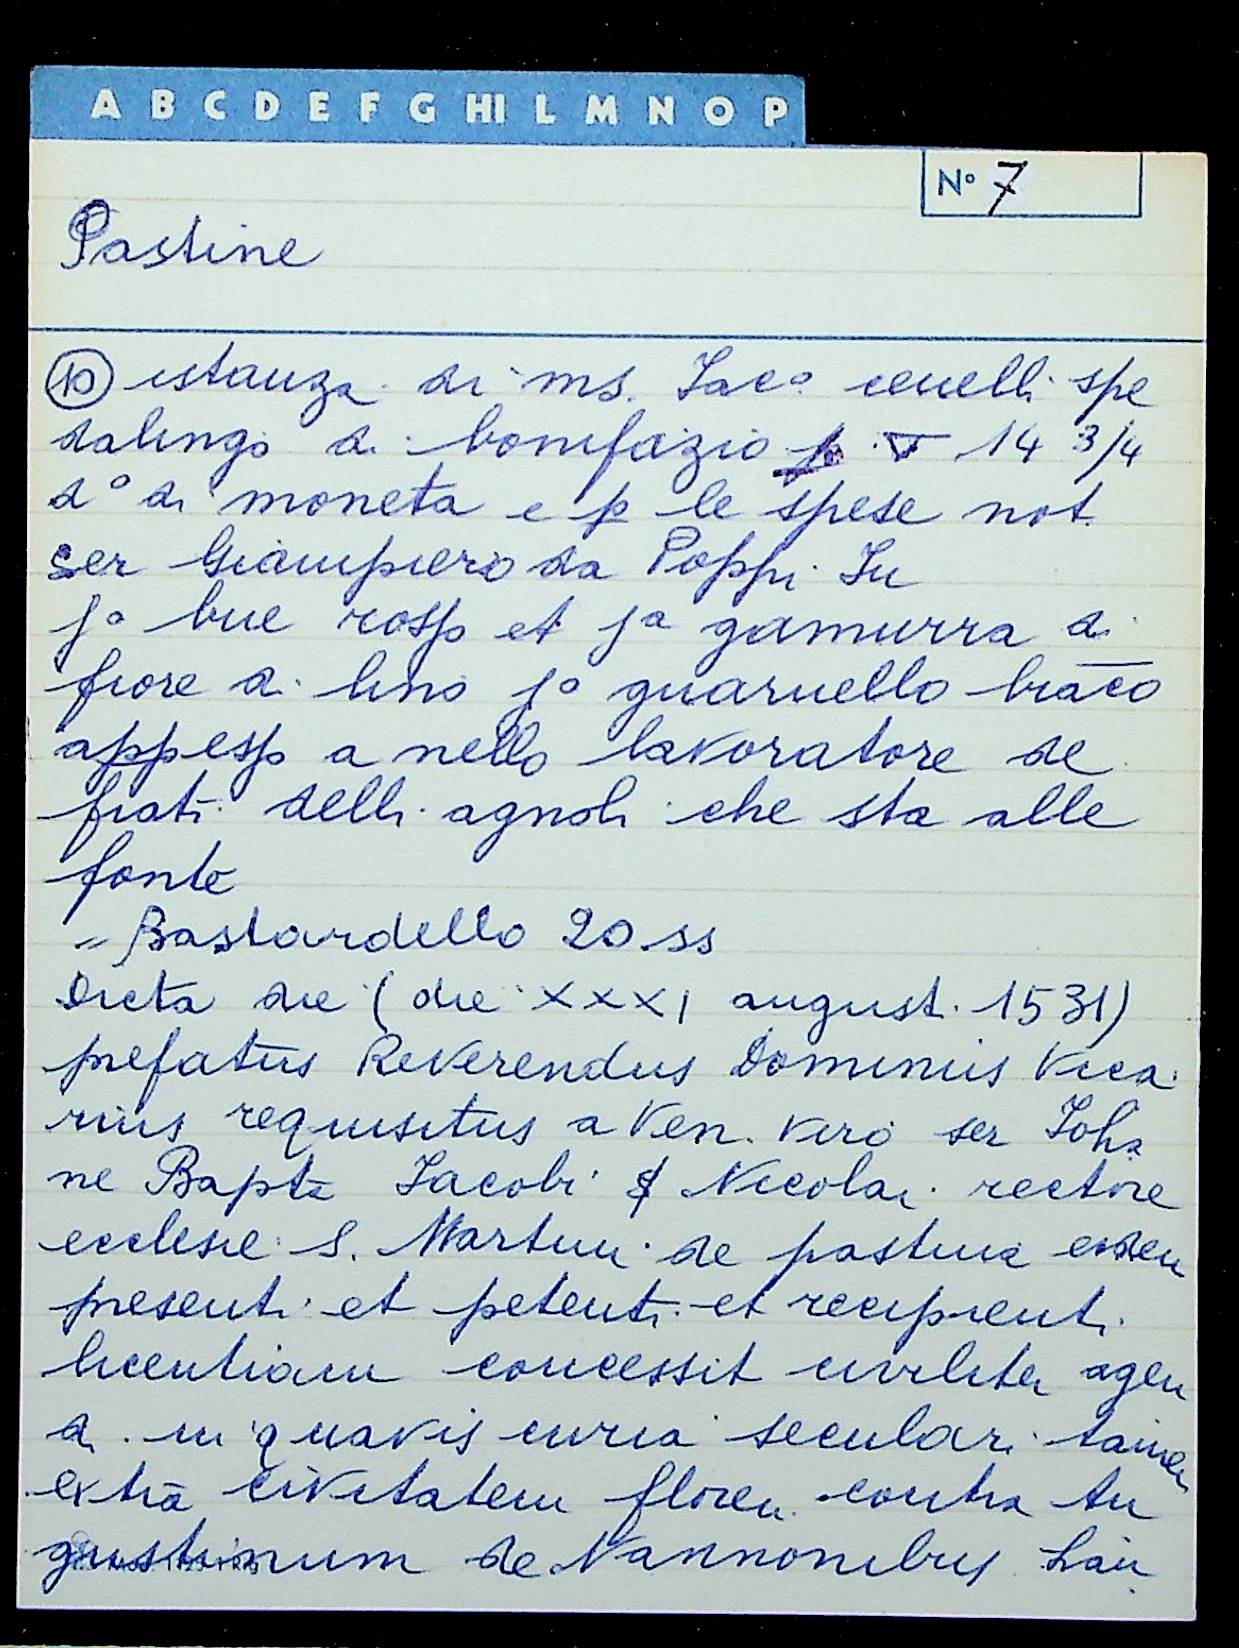 A B C D E F G HI L M N O P
N° 7
Pastine
10 istanza di ms. Iaco cenelli spe
dalingo di bonifazio p ▽ 14 3/4
d° di moneta e p le spese not.
ser Giampiero da Poppi. In
j° bue rosso et ja gamurra di
fiore di lino j° guarnello biaco
appesso a nello lavoratore de
frati delli agnoli che sta alle
fonte
= Bastardello 20 ss
Dicta die (die XXXI august. 1531)
prefatus Reverendus Dominus Vica
rius requisitus a Ven. viro ser Joha
ne Bapta Iacobi Nicolai rectore
ecclesie S. Martini de pastina eiden
presenti et petenti et recipienti
licentiam concessit civiliter agen
di in quavis curia seculari tamen
extra civitatem floren. contra Au
gustinum de Nannonibus